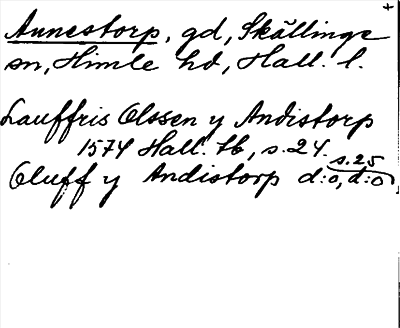 +
Annestorp, gd, Skällinge
sn, Himle hd, Hall. l.
Lauffris Olssen y Andistorp
1574 Hall. tb, s. 24.
s. 25
Oluff y Andistorp d:o, d:o,